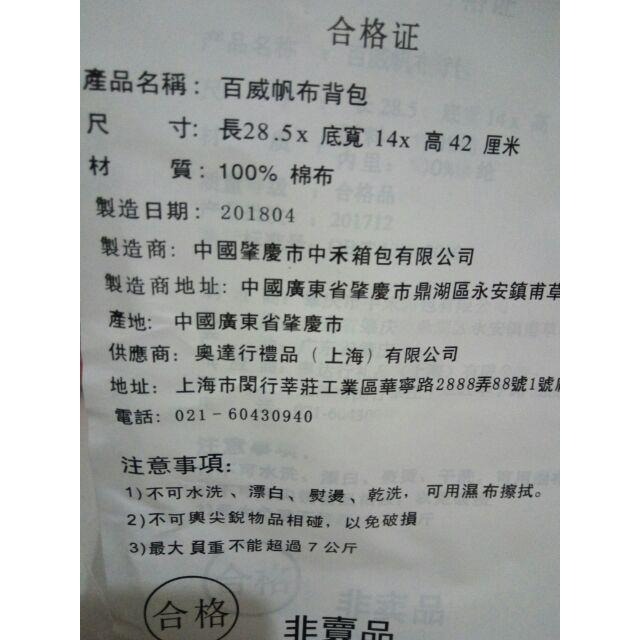 合格证
產品名稱：百威帆布背包
尺 寸：長28.5x 底寬 14x 高 42 厘米
材 質：100% 棉布
製造日期：201804
製造商：中國肇慶市中禾箱包有限公司
製造商地址：中國廣東省肇慶市鼎湖區永安鎮甫草
產地：中國廣東省肇慶市
供應商：奧達行禮品（上海）有限公司
地址：上海市閔行莘莊工業區華寧路2888弄88號1號
電話：021-60430940
注意事項：
1)不可水洗、漂白、熨燙、乾洗，可用濕布擦拭。
2)不可輿尖銳物品相碰，以免破損
3)最大 負重不能超過 7 公斤
合格
非賣品